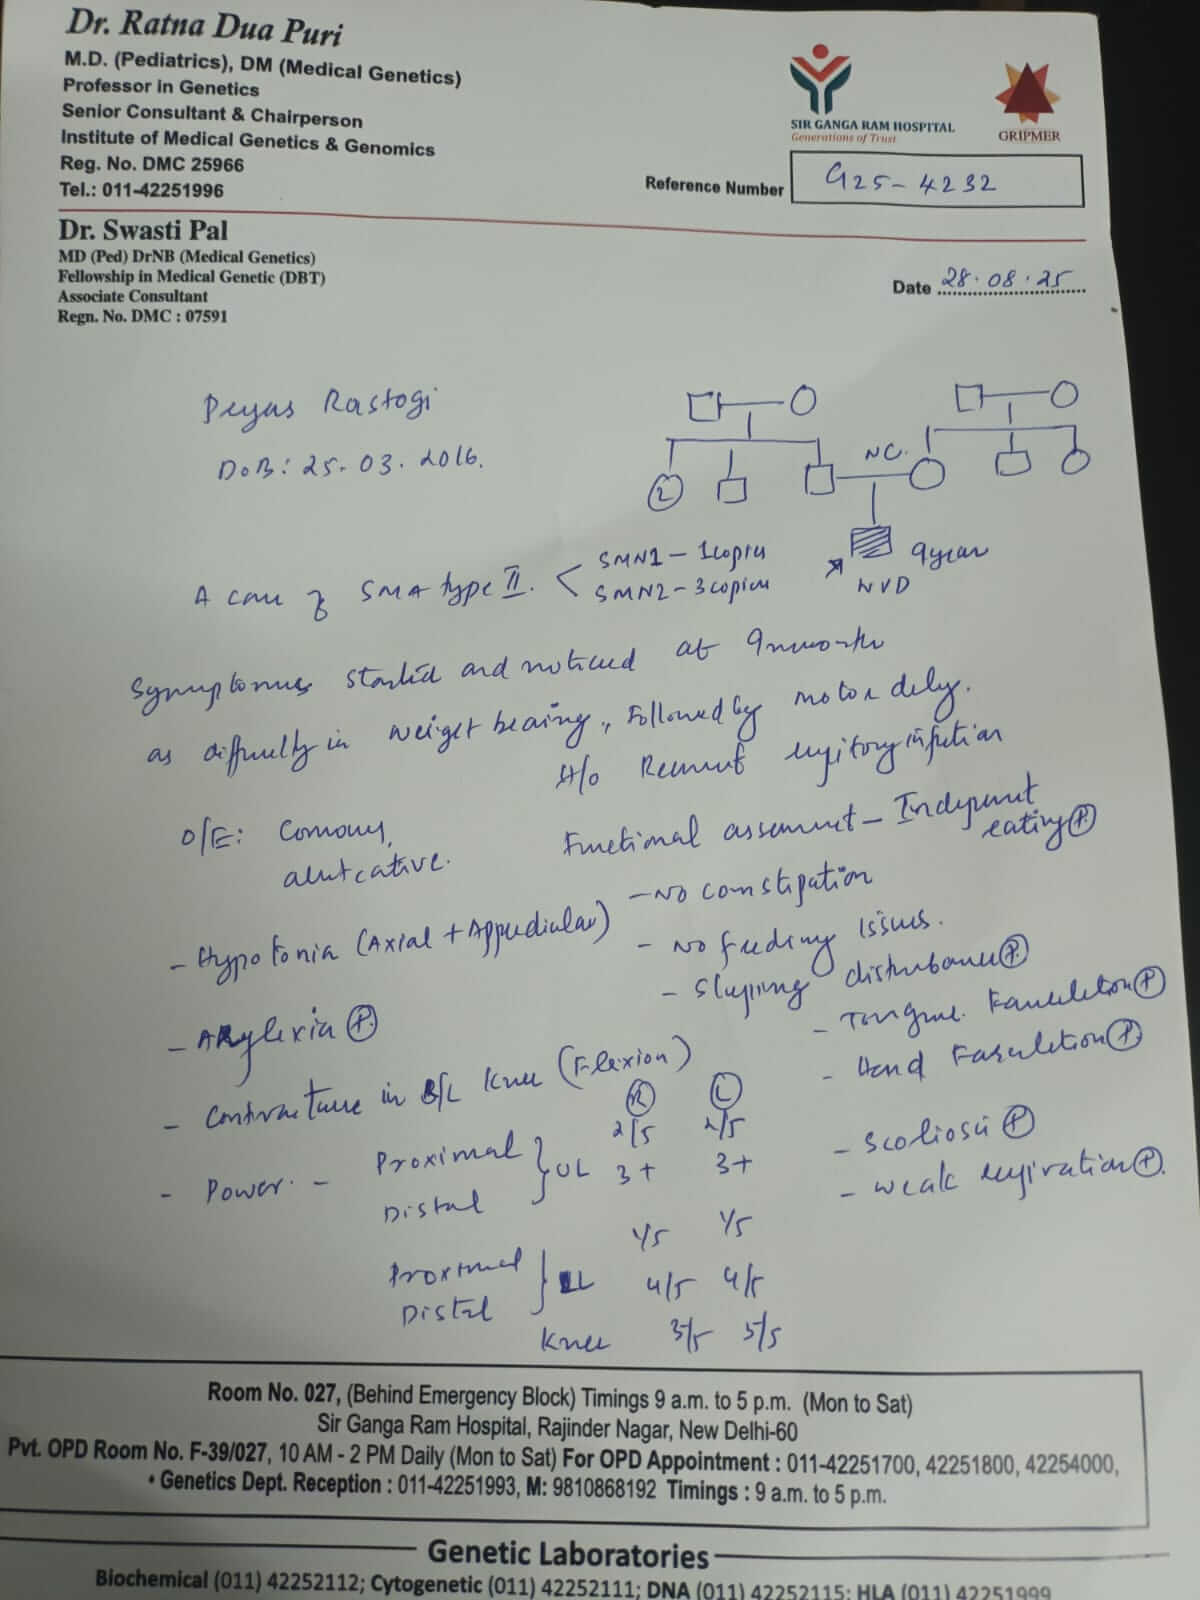 Dr. Ratna Dua Puri
M.D. (Pediatrics), DM (Medical Genetics)
Professor in Genetics
Senior Consultant & Chairperson
Institute of Medical Genetics & Genomics
Reg. No. DMC 25966
Tel.: 011-42251996
SIR GANGA RAM HOSPITAL
Generations of Trust
GRIPMER
Reference Number G25-4232
Dr. Swasti Pal
MD (Ped) DrNB (Medical Genetics)
Fellowship in Medical Genetic (DBT)
Associate Consultant
Regn. No. DMC : 07591
Date 28.08.25
Rastogi
DOB: 25.03.2016.
NC.
2
9 year
NVD
A case of SMA type II. < SMN1 - 1 copies
SMN2 - 3 copies
Symptoms started and noticed at 9 months
as difficulty in weight bearing, followed by motor delay.
H/o Recurrent respiratory infection
O/E: Conscious,
Functional assessment - Independent
eating (P)
- Hypotonia (Axial + Appendicular)
- No constipation
- No feeding issues.
- Sleeping disturbance (P).
- Areflexia (P).
- Tongue Fasciculation (P)
- Hand Fasciculation (P).
- Contracture in B/L Knee (Flexion)
R L
- Power. - Proximal } UL 2/5 2/5
Distal 3+ 3+
- Scoliosis (P)
- Weak respiration (P).
Proximal } LL 1/5 1/5
Distal 4/5 4/5
Knee 3/5 5/5
Room No. 027, (Behind Emergency Block) Timings 9 a.m. to 5 p.m. (Mon to Sat)
Sir Ganga Ram Hospital, Rajinder Nagar, New Delhi-60
Pvt. OPD Room No. F-39/027, 10 AM - 2 PM Daily (Mon to Sat) For OPD Appointment : 011-42251700, 42251800, 42254000,
• Genetics Dept. Reception : 011-42251993, M: 9810868192 Timings : 9 a.m. to 5 p.m.
Genetic Laboratories
Biochemical (011) 42252112; Cytogenetic (011) 42252111; DNA (011) 42252115; HLA (011) 42251999